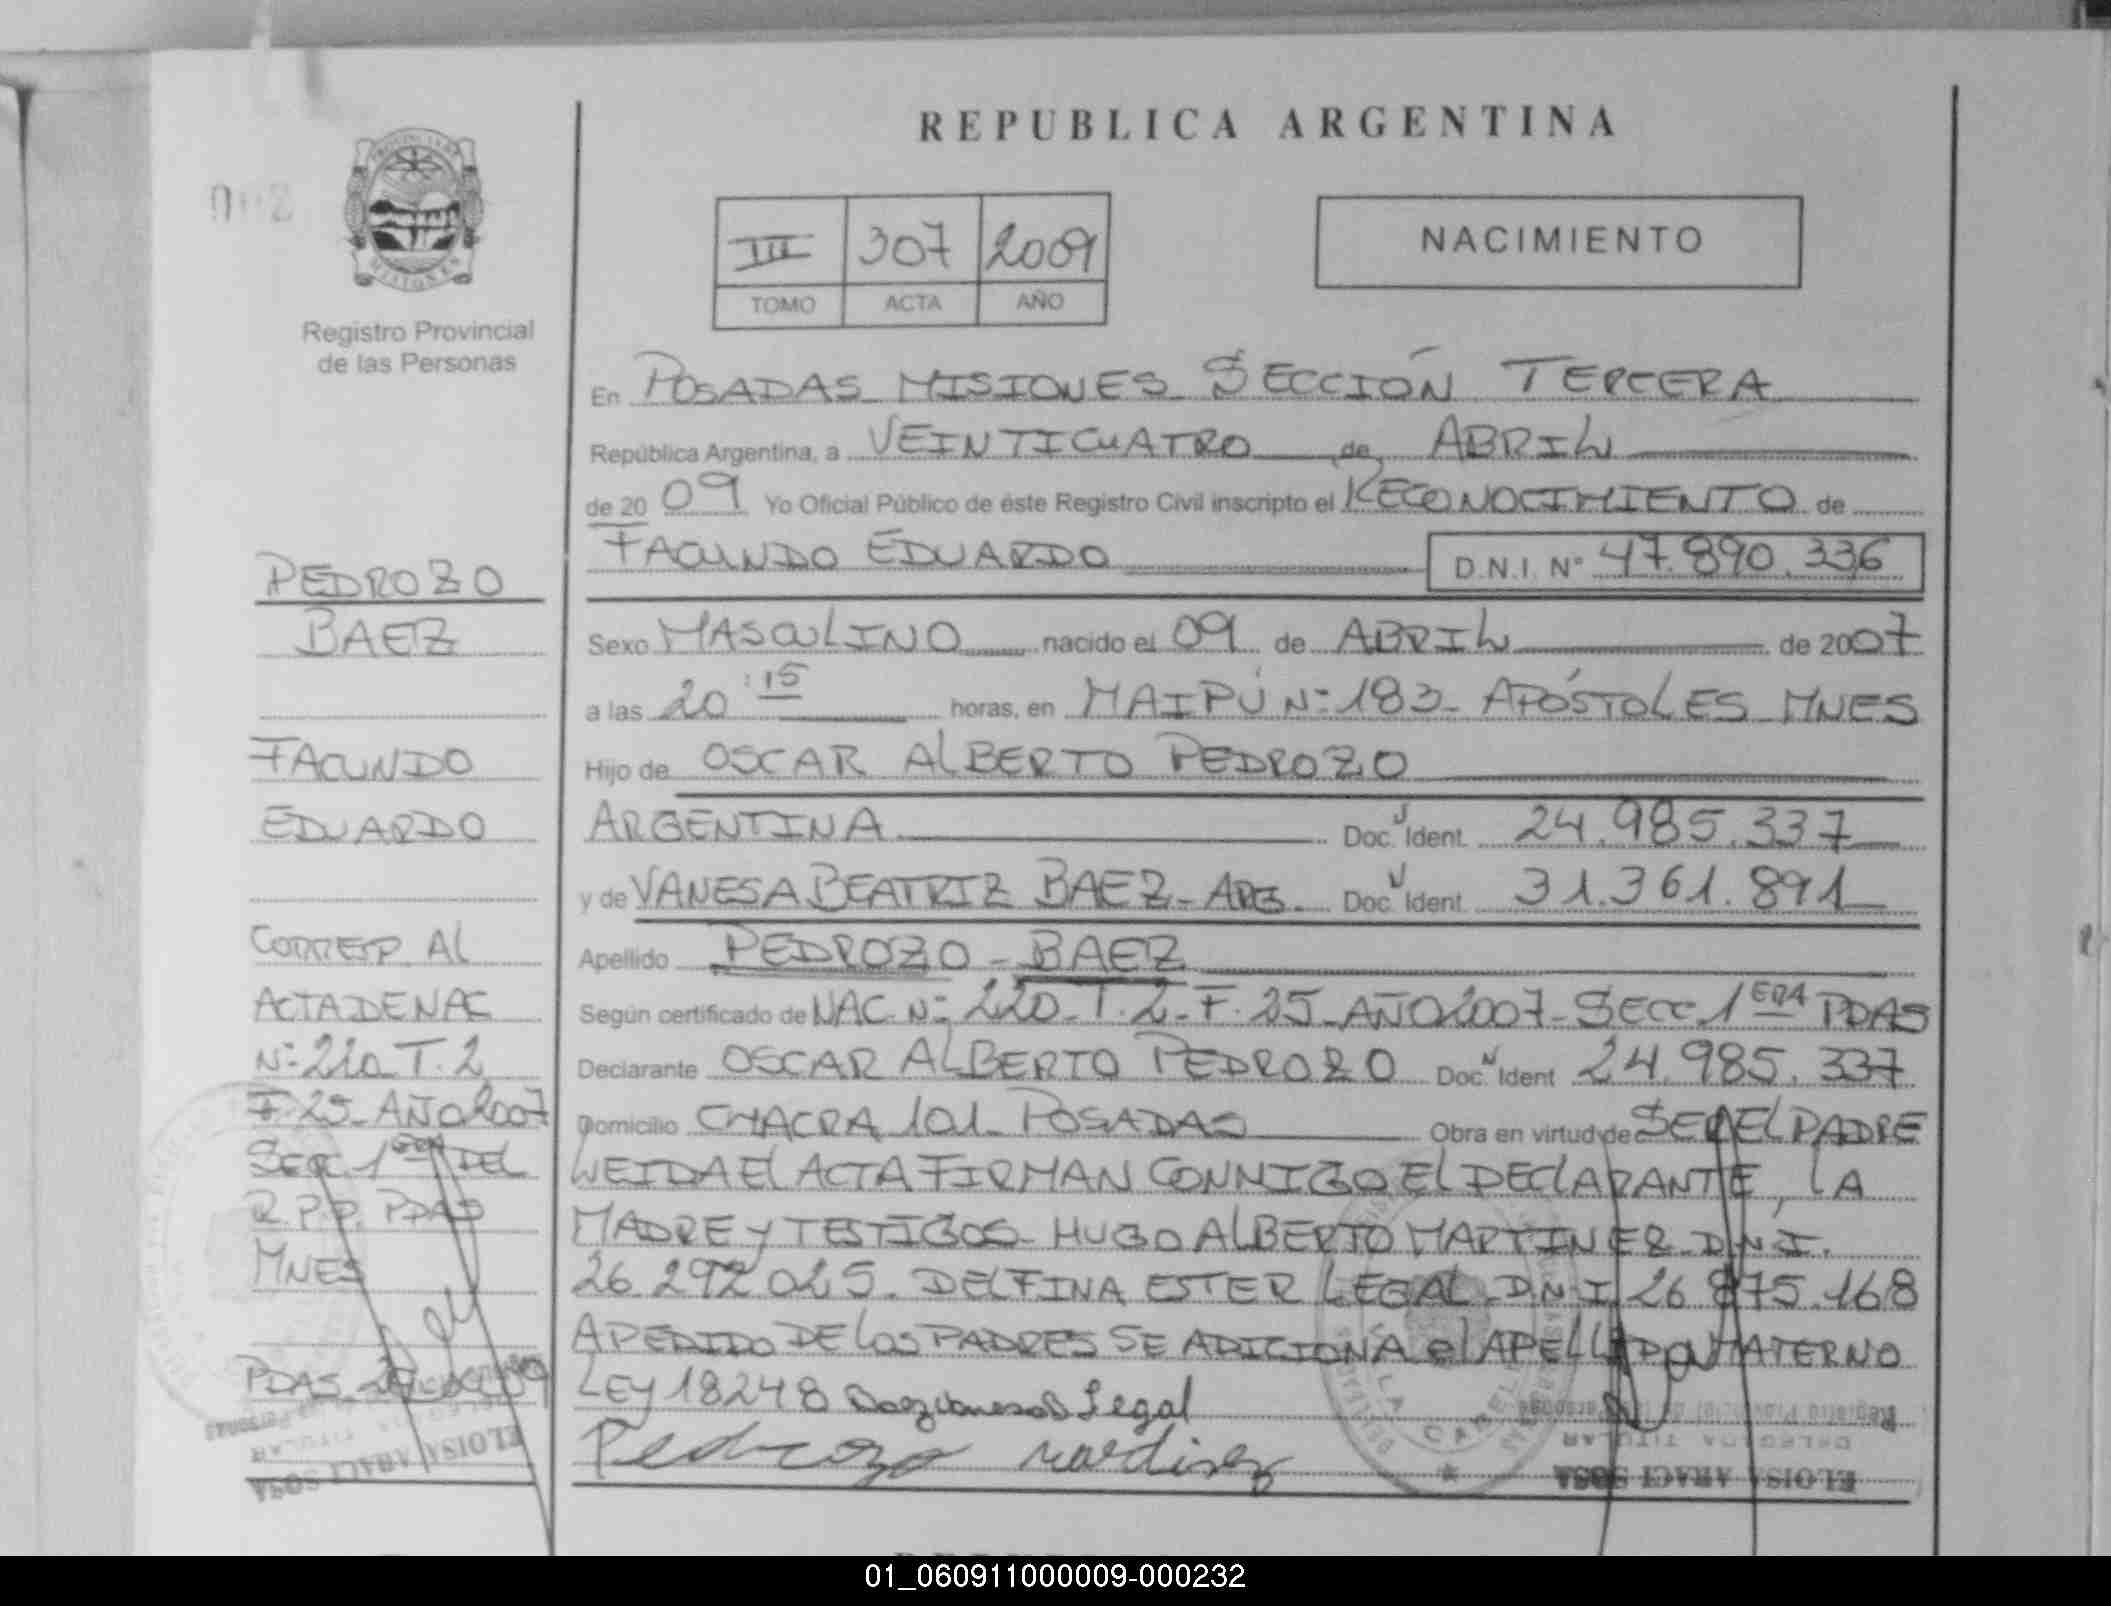 REPUBLICA ARGENTINA
III 307 2009
TOMO ACTA AÑO
NACIMIENTO
Registro Provincial
de las Personas
En POSADAS MISIONES SECCIÓN TERCERA
República Argentina, a VEINTICUATRO de ABRIL
de 20 09 Yo Oficial Público de éste Registro Civil inscripto el RECONOCIMIENTO de
FACUNDO EDUARDO D.N.I. N° 47.890.336
Sexo MASCULINO nacido el 09 de ABRIL de 2007
a las 20:15 horas, en MAIPÚ Nº 183- APÓSTOLES MNES
Hijo de OSCAR ALBERTO PEDROZO
ARGENTINA Doc. Ident. 24.985.337
y de VANESA BEATRIZ BAEZ- ARG. Doc. Ident. 31.361.891
Apellido PEDROZO - BAEZ
Según certificado de NAC. Nº 220- T.2- F. 25- AÑO 2007- SECC 1ERA PDAS
Declarante OSCAR ALBERTO PEDROZO Doc. Ident 24.985.337
Domicilio CHACRA 101- POSADAS Obra en virtud de SER EL PADRE
LEIDA El ACTA FIRMAN CONMIGO El DEClARANTE, LA
MADRE y TESTIGOS- HUGO AlBERTO MARTINEZ- D.N.I.
26.292.025. DELFINA ESTER LEGAL- D.N.I 26.875.168
A PEDIDO DE LOS PADRES SE ADICIONA el APELLIDO MATERNO
LEY 18248 Baez Vanesa B Legal
Pedrozo
PEDROZO
BAEZ
FACUNDO
EDUARDO
CORRESP. Al
ACTA DE NAC
Nº 220 T. 2
F. 25- AÑO 2007
SECC. 1ERA DEL
R.P.P. PDAS
MNES
PDAS
ELOISA ARACI SOSA
DELEGADA TITULAR
Registro Provincial de las Personas
ELOISA ARACI SOSA
01_060911000009-000232